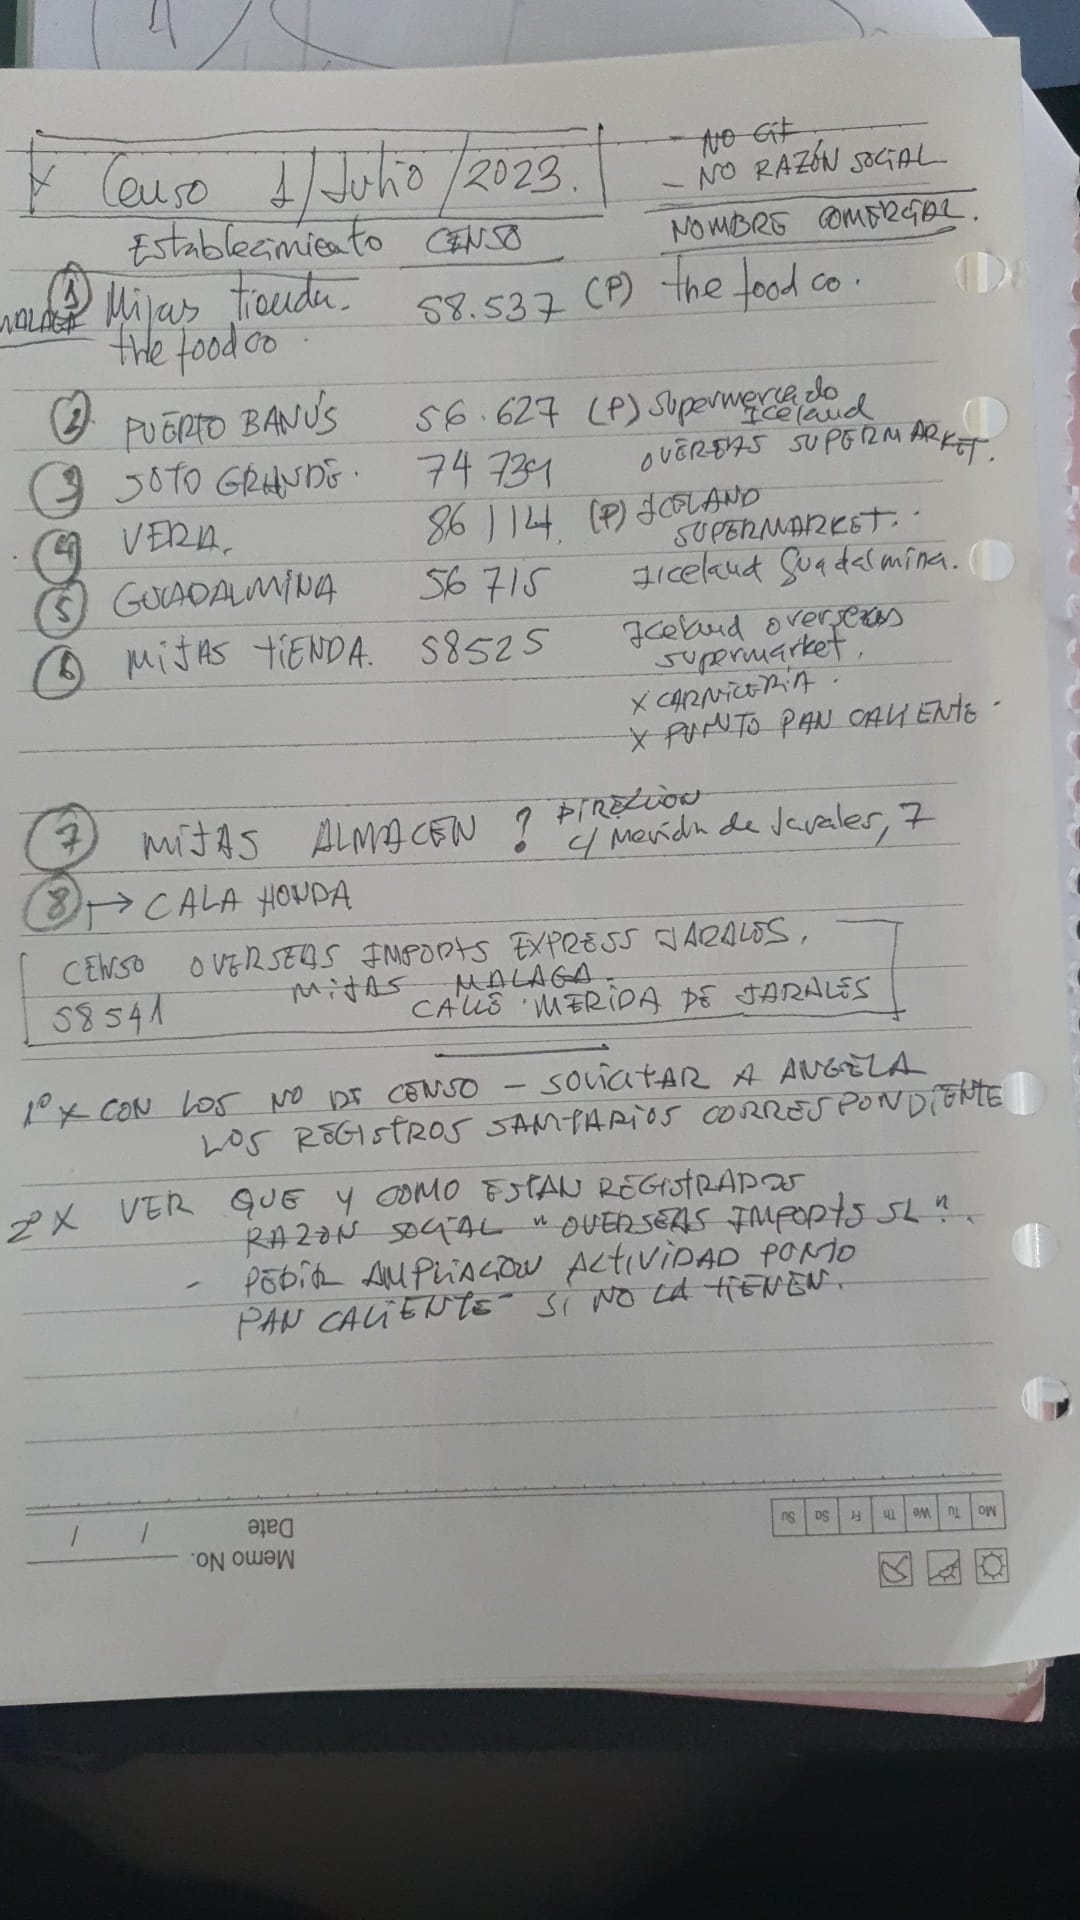 x Censo 1/Julio/2023.
- NO Cif
- NO RAZÓN SOCIAL
NOMBRE COMERCIAL.
Establecimiento CENSO
1 Mijas tienda. 58.537 (P) the food co.
MALAGA the food co
2 PUERTO BANÚS 56.627 (P) Supermercado
Iceland
OVERSEAS SUPERMARKET.
3 SOTO GRANDE. 74 739
4 VERA. 86 114. (P) ICELAND
SUPERMARKET.
5 GUADALMINA 56 715 Iceland Guadalmina.
6 MIJAS TIENDA. 58525 Iceland overseas
supermarket.
X CARNICERIA.
X PUNTO PAN CALIENTE.
7 MIJAS ALMACEN ? DIRECCION
c/ Merida de Jarales, 7
8 → CALA HONDA
CENSO OVERSEAS IMPORTS EXPRESS JARALES.
MIJAS MALAGA.
58541 CALLE MERIDA DE JARALES
1º X CON LOS NO DE CENSO - SOLICITAR A ANGELA
LOS REGISTROS SANITARIOS CORRESPONDIENTE
2º X VER QUE Y COMO ESTAN REGISTRADOS
RAZON SOCIAL "OVERSEAS IMPORTS SL".
- PEDIR AMPLIACION ACTIVIDAD PONTO
PAN CALIENTE - SI NO LA TIENEN.
Mo Tu We Th Fr Sa Su
Memo No.
Date / /